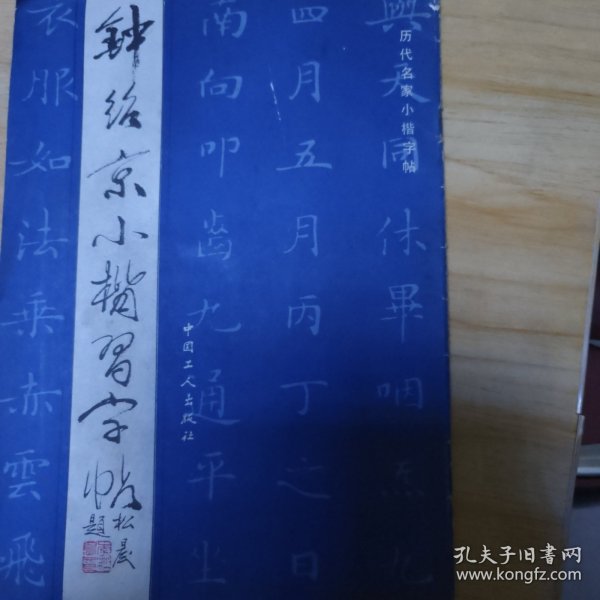 历代名家小楷字帖
與天同休畢咽炁九
四月五月丙丁之日
南向叩齒九通平坐
中国工人出版社
鍾绍京小楷習字帖
松晨题
衣服如法乘赤雲飛
孔夫子旧书网
www.kongfz.com